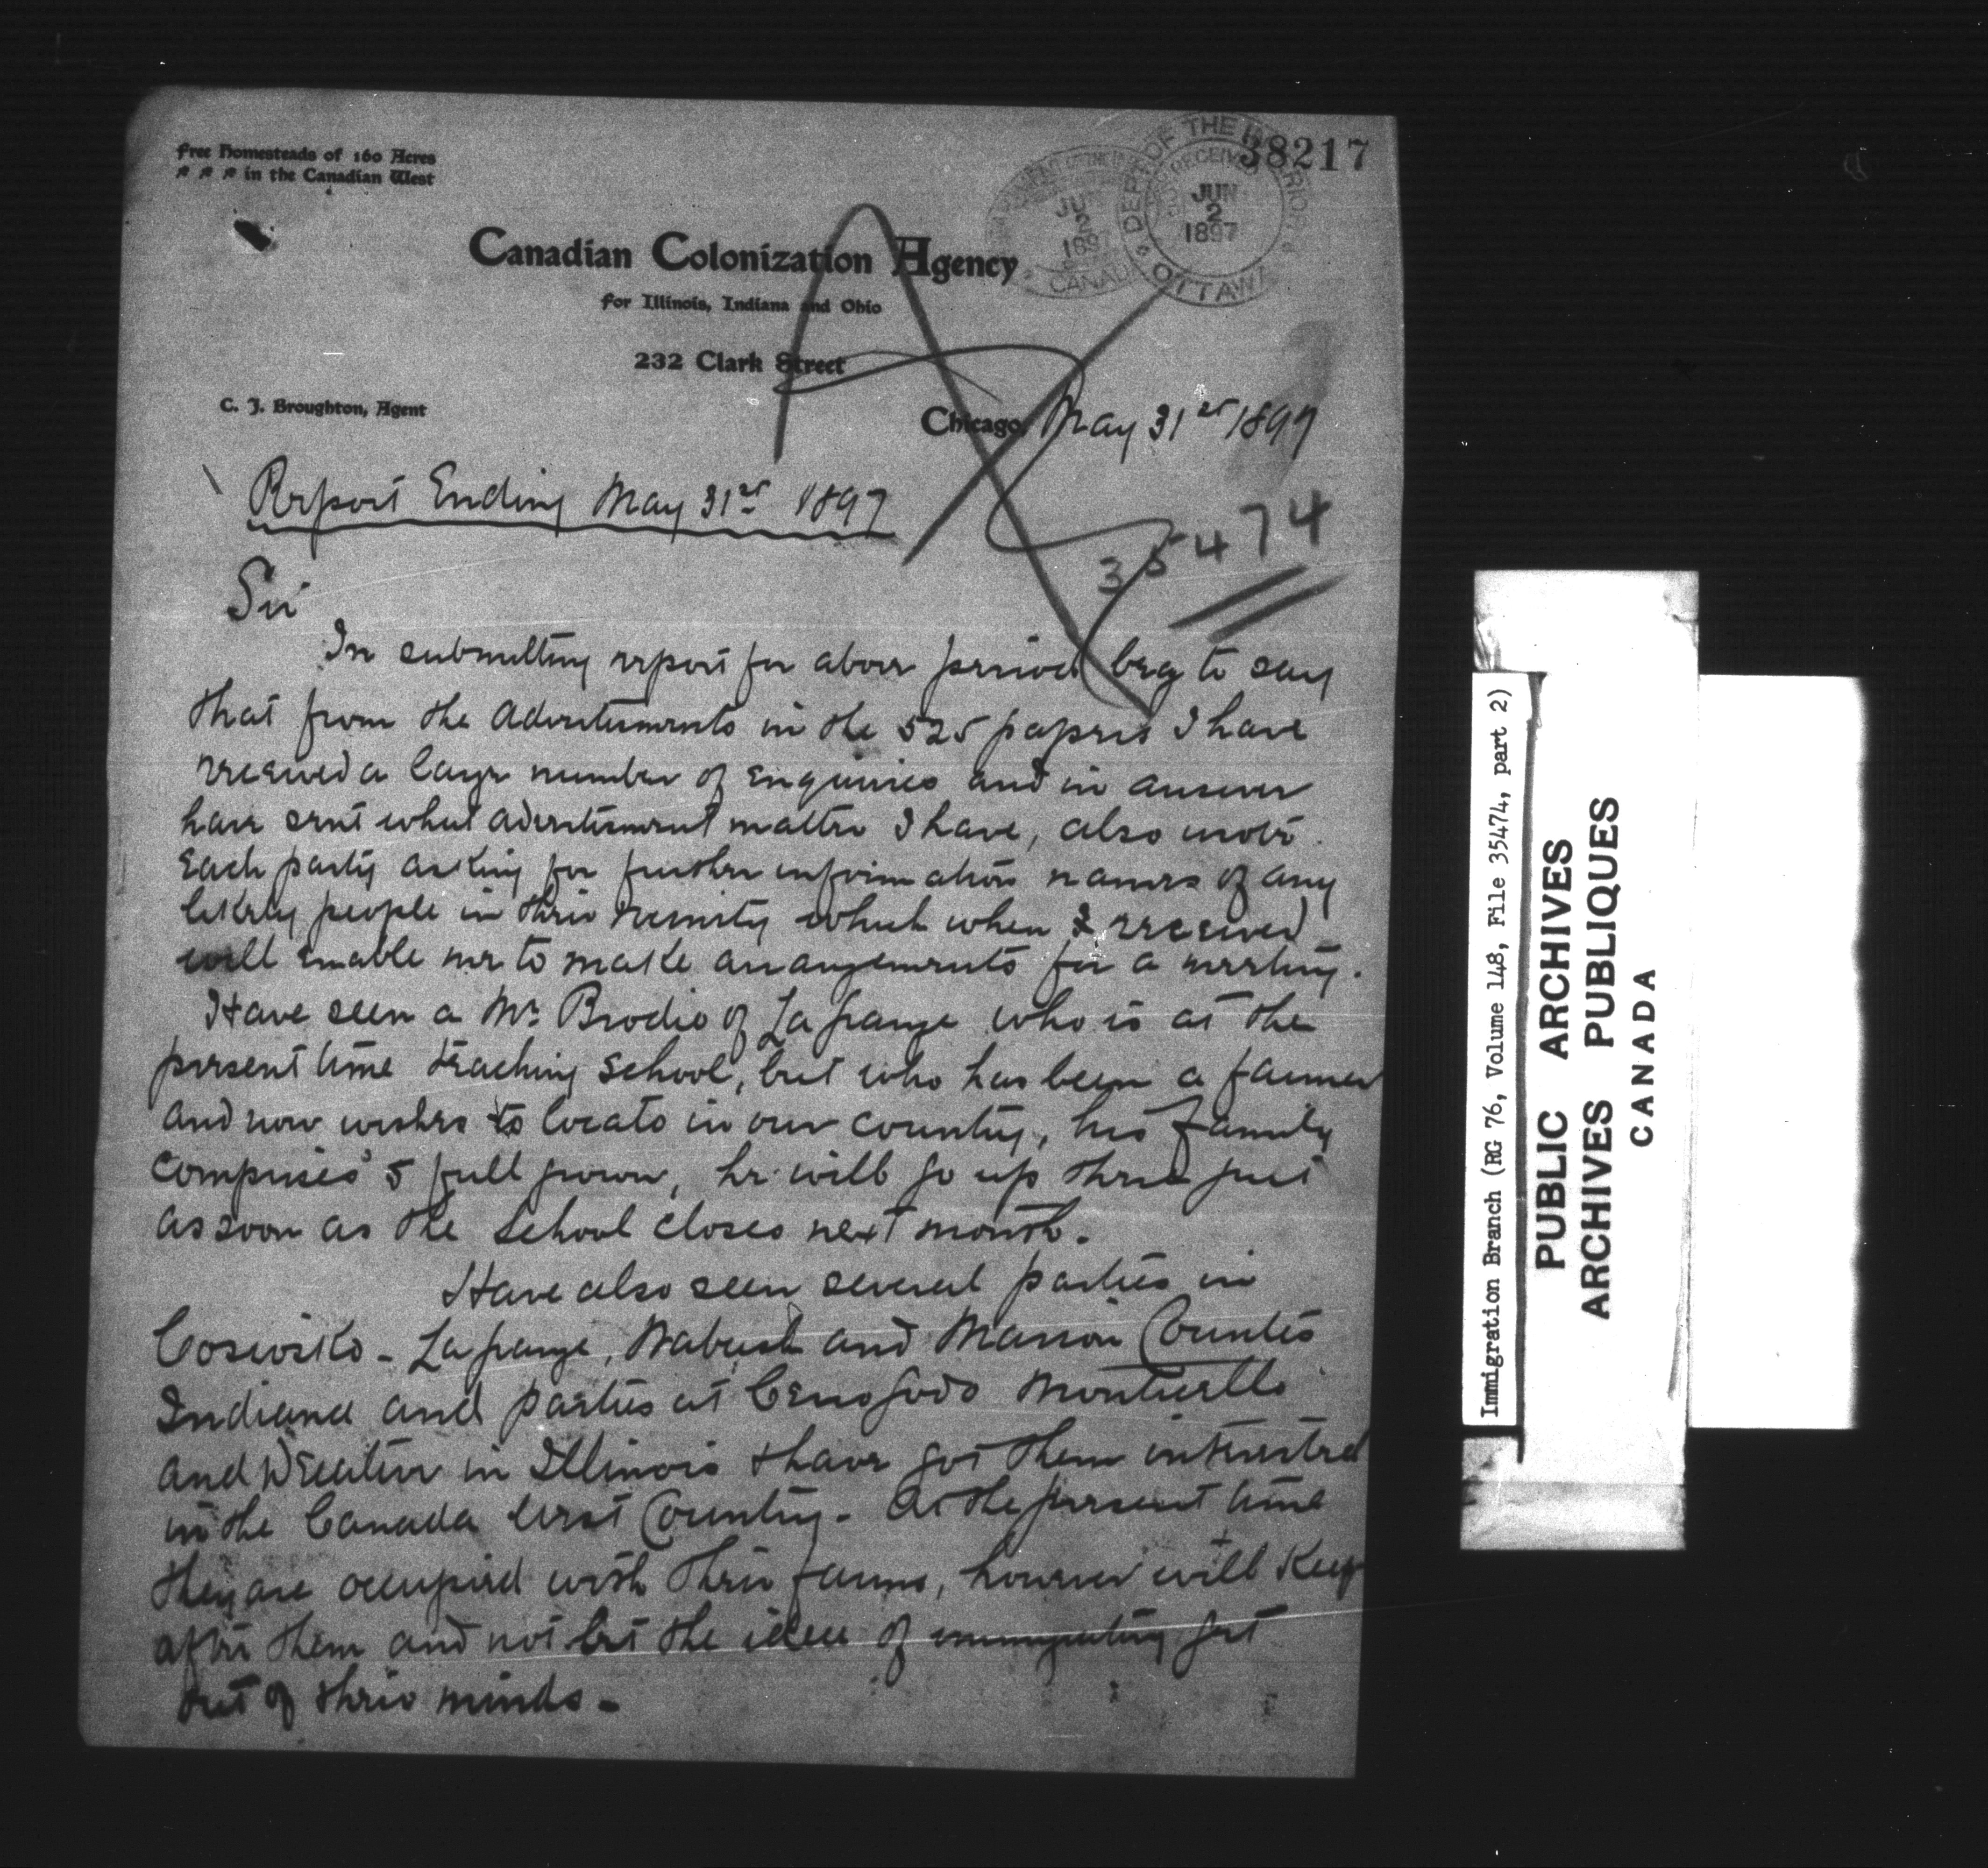 Free Homesteads of 160 Acres
in the Canadian West
38217
DEPT. OF THE INTERIOR
RECEIVED
JUN
2
1897
OTTAWA
JUN
2
1897
CANADA
Canadian Colonization Agency
For Illinois, Indiana and Ohio
232 Clark Street
C. J. Broughton, Agent
Chicago, May 31st 1897
Report Ending May 31st 1897
35474
Sir
In submitting report for above period beg to say
that from the Advertisements in the 525 papers I have
received a large number of enquiries and in answer
have sent what advertisement matter I have, also
each party asking for further information names of any
likely people in their vicinity which when received
will enable me to make arrangements for a meeting.
Have seen a Mr. Brodie of Lagrange who is at the
present time teaching school, but who has been a farmer
and now wishes to locate in our country, his family
comprises 5 full grown, he will go up there just
as soon as the school closes next month.
Have also seen several parties in
Cosiosko - Lagrange, Wabash and Marion Counties
Indiana and parties at Monticello
and in Illinois & have got them interested
in the Canada West Country. At the present time
they are occupied with their farms, however will keep
after them and not let the idea of immigrating get
out of their minds -
Immigration Branch (RG 76, Volume 148, File 35474, part 2)
PUBLIC ARCHIVES
ARCHIVES PUBLIQUES
CANADA